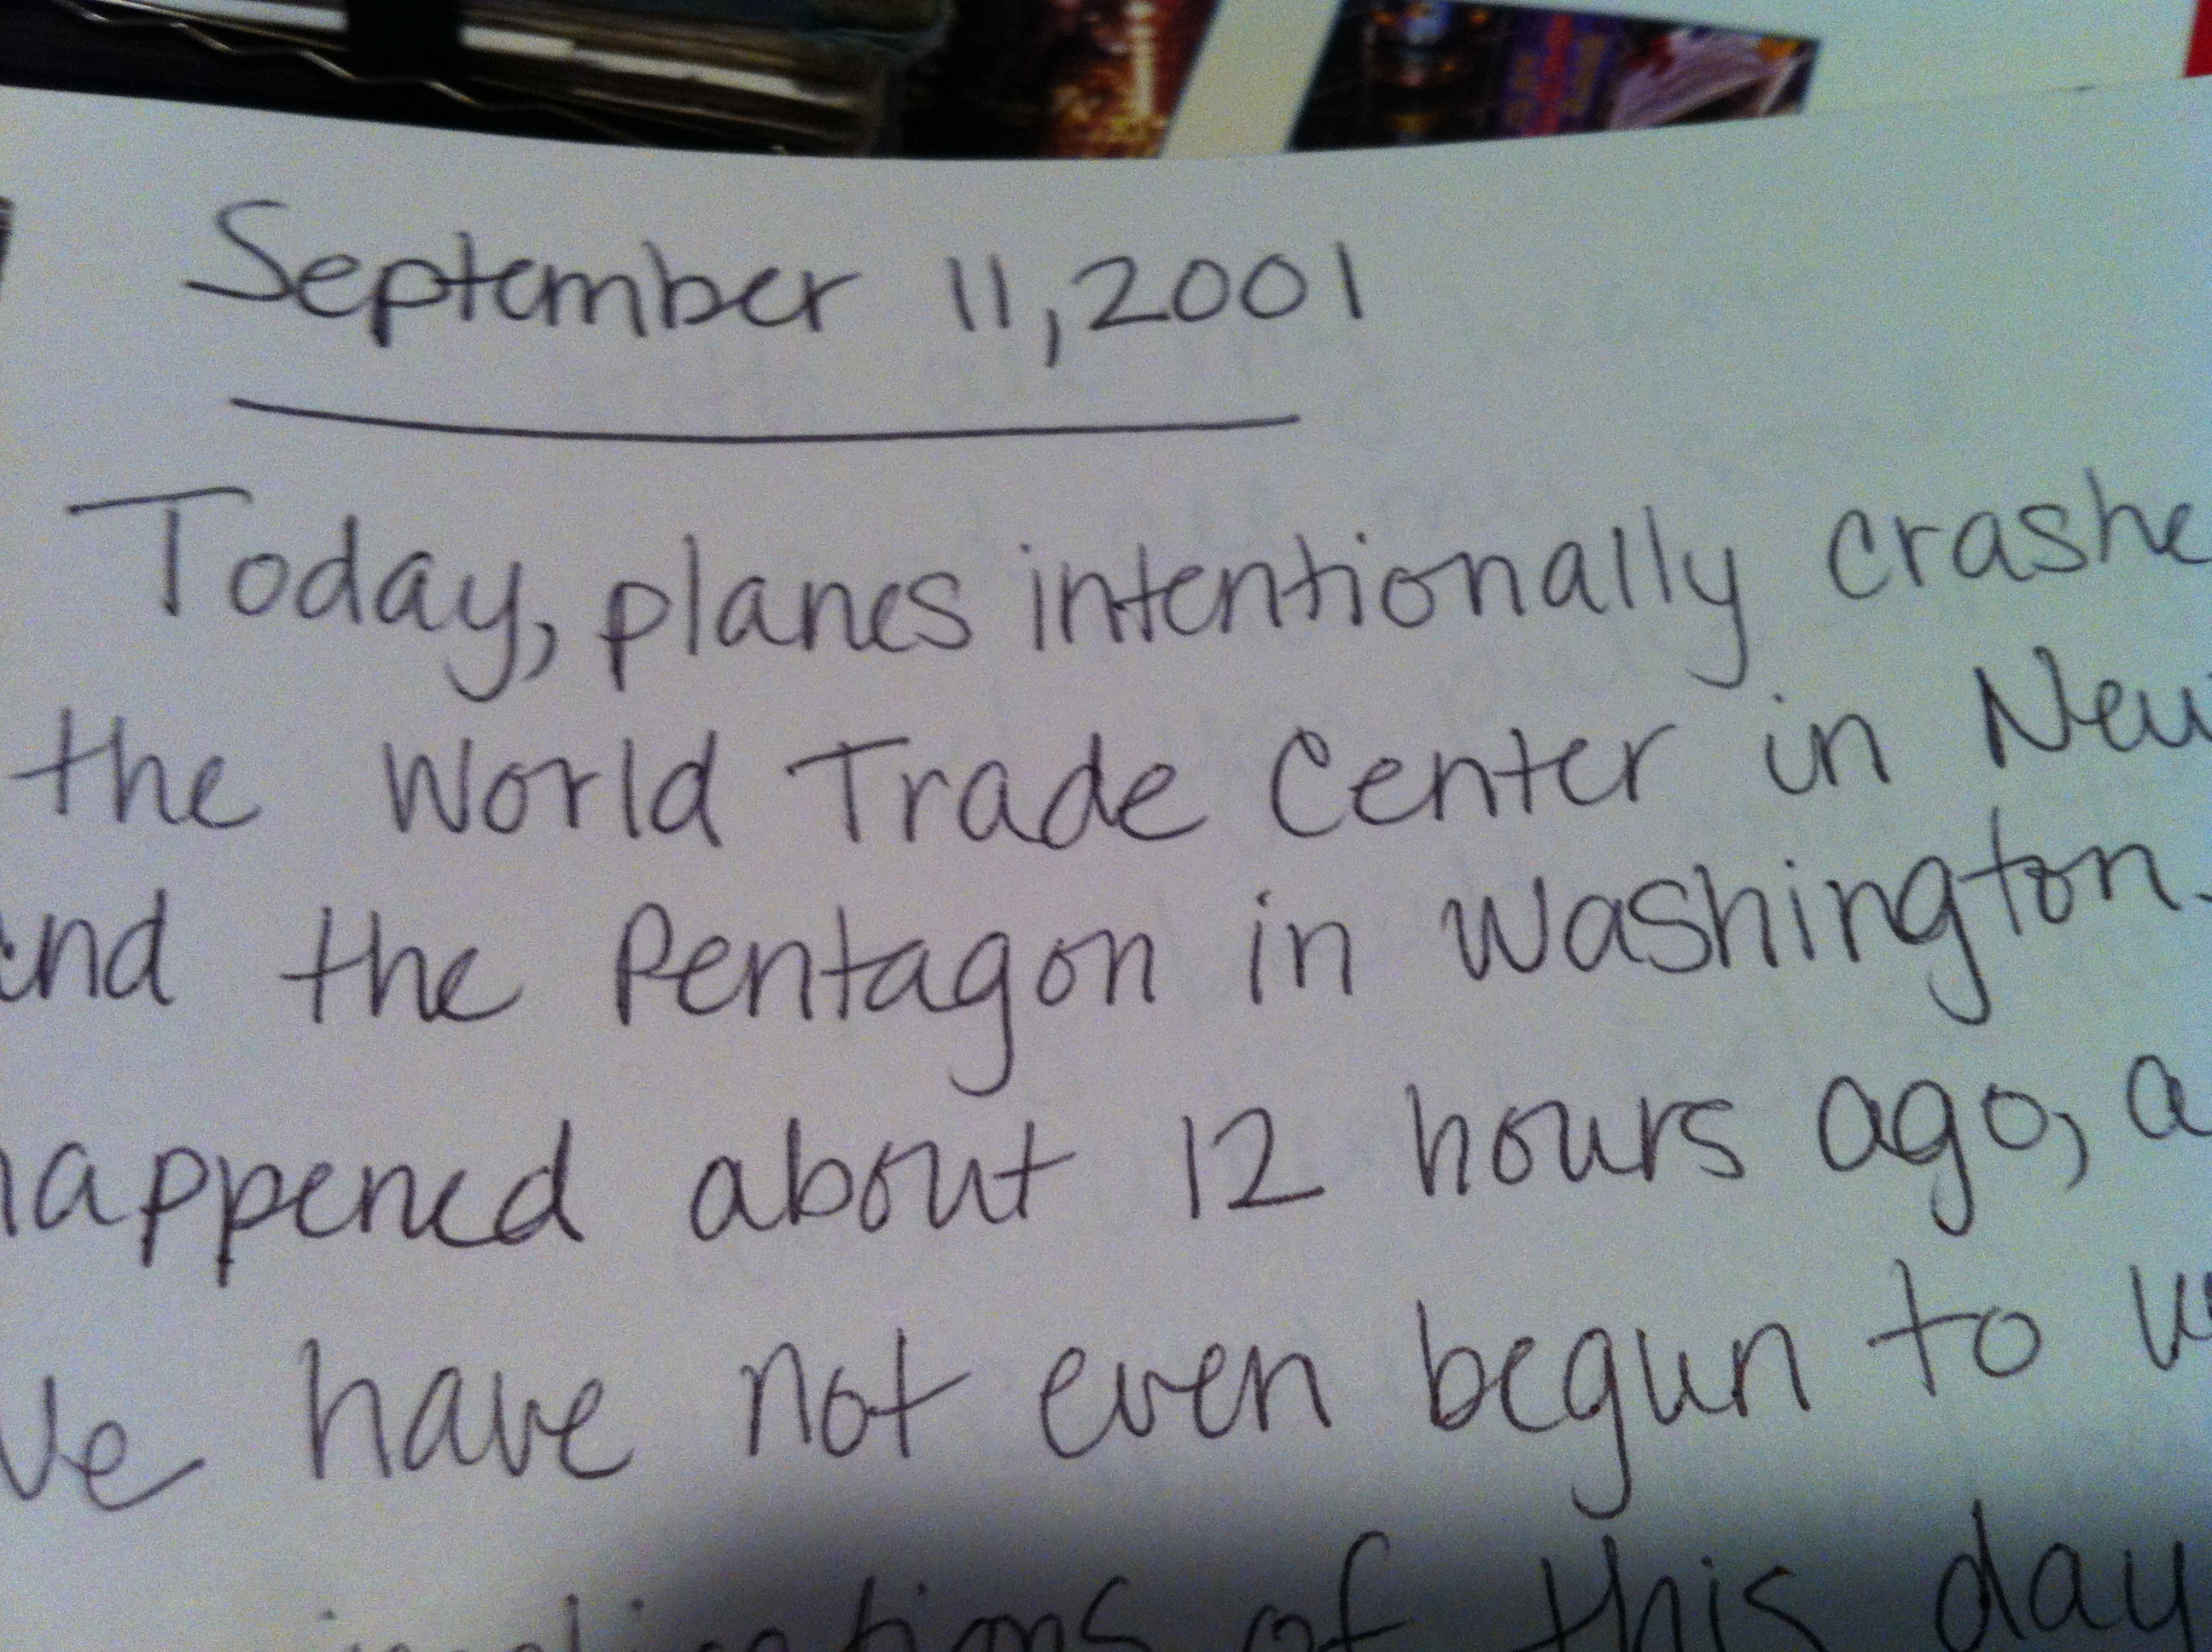 September 11, 2001
Today, planes intentionally crashe
the World Trade Center in New
and the Pentagon in Washington.
happened about 12 hours ago, a
We have not even begun to
implications of this day